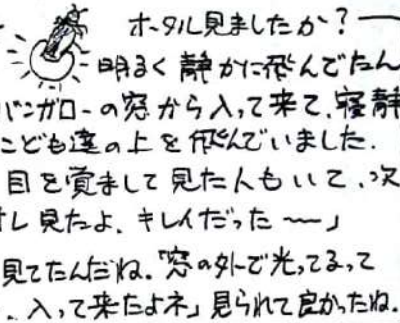 ホタル見ましたか?―
明るく静かに飛んでたん
バンガローの窓から入って来て、寝静
こども達の上を飛んでいました.
目を覚まして見た人もいて、次
オレ見たよ、キレイだった〜〜」
見てたんだね。「窓の外で光ってるって
、入って来たよネ」見られて良かったね。